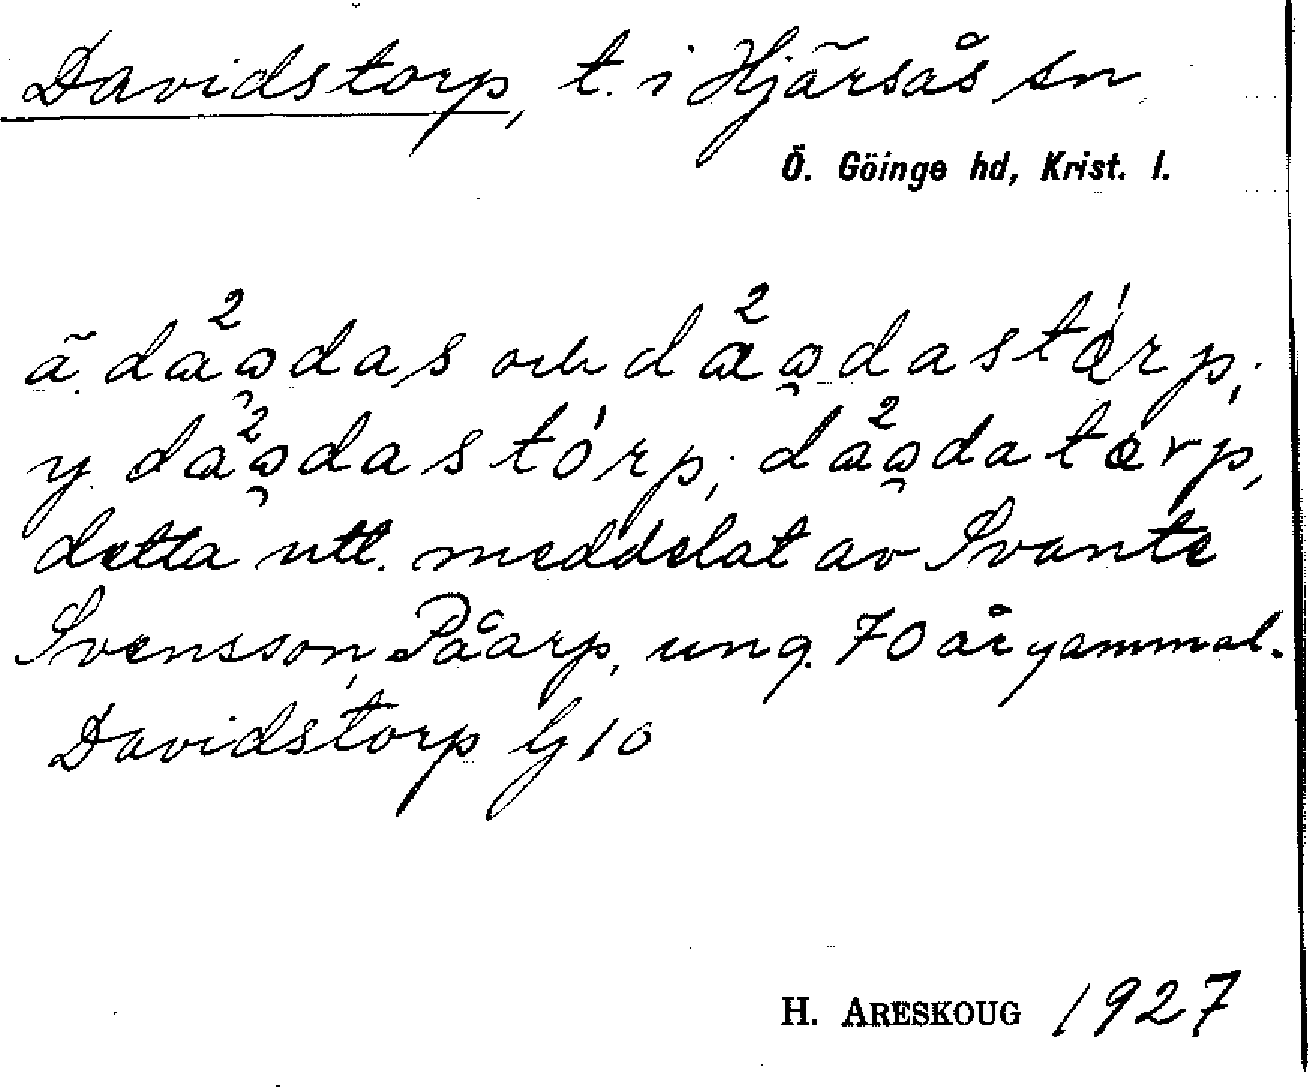 Davidstorp, t. i Hjärsås sn
Ö. Göinge hd, Krist. l.
ä. da²ɷ̯das och dæ²ɷ̯dastórp;
y. da²ɷ̯dastórp; da²ɷ̯datɷrp,
detta utt. meddelat av Svante
Svensson, Påarp, ung. 70 år gammal.
Davidstorp G 10
H. ARESKOUG 1927